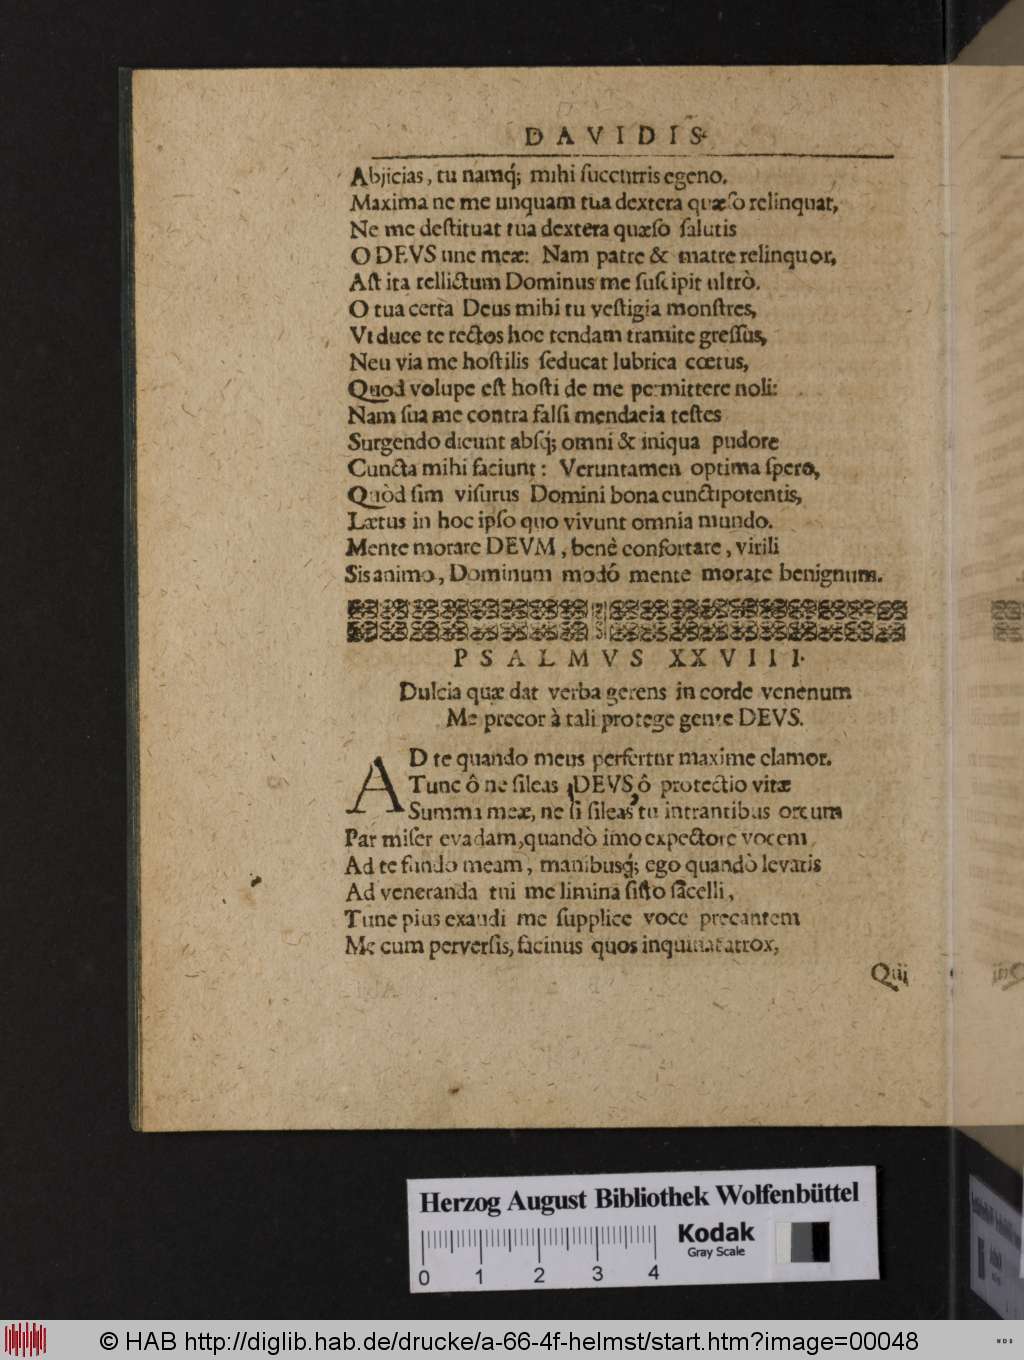 DAVIDIS.
Abjicias, tu namq́; mihi ſuccurris egeno.
Maxima ne me unquam tua dextera quæſo relinquat,
Ne me deſtituat tua dextera quæſo ſalutis
O DEVS une meæ: Nam patre & matre relinquor,
Aſt ita rellictum Dominus me ſuſcipit ultrò.
O tua certa Deus mihi tu veſtigia monſtres,
Vt duce te rectos hoc tendam tramite greſſus,
Neu via me hoſtilis ſeducat lubrica cœtus,
Quod volupe eſt hoſti de me permittere noli:
Nam ſua me contra falſi mendacia teſtes
Surgendo dicunt abſq́; omni & iniqua pudore
Cuncta mihi faciunt: Veruntamen optima ſpero,
Quòd ſim viſurus Domini bona cunctipotentis,
Lætus in hoc ipſo quo vivunt omnia mundo.
Mente morare DEVM, benè confortare, virili
Sis animo, Dominum modó mente morare benignum.
PSALMVS XXVIII.
Dulcia quæ dat verba gerens in corde venenum
Me precor à tali protege gente DEVS.
AD te quando meus perfertur maxime clamor.
Tunc ô ne ſileas, DEVS ô protectio vitæ
Summa meæ, ne ſi ſileas tu intrantibus orcum
Par miſer evadam, quandò imo expectore vocem
Ad te fundo meam, manibusq́; ego quandò levatis
Ad veneranda tui me limina ſiſto ſacelli,
Tunc pius exaudi me ſupplice voce precantem
Me cum perverſis, facinus quos inquinat atrox,
Qui
Herzog August Bibliothek Wolfenbüttel
Kodak
Gray Scale
0 1 2 3 4
© HAB http://diglib.hab.de/drucke/a-66-4f-helmst/start.htm?image=00048